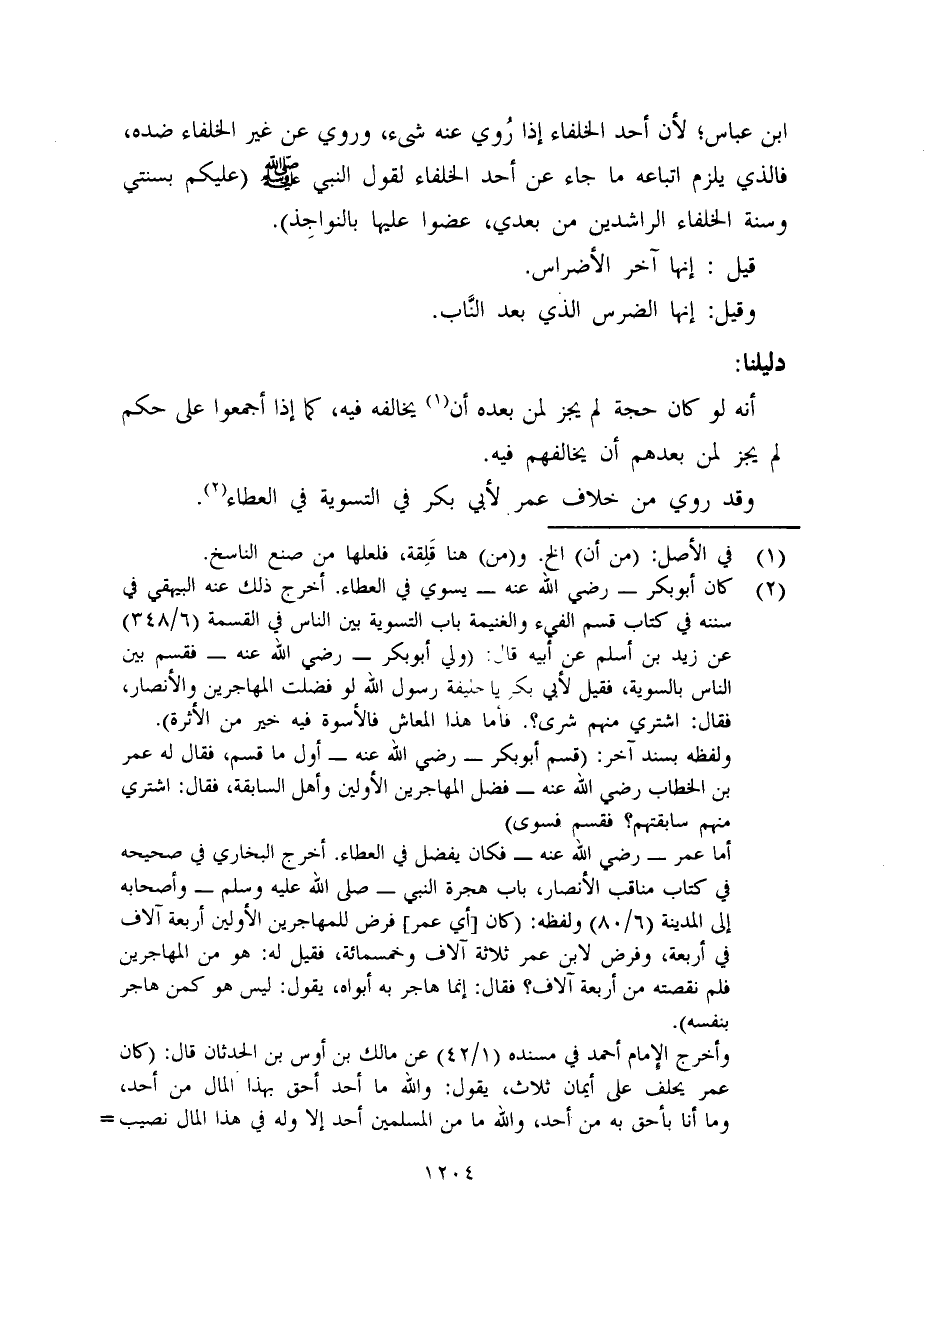 ابن عباس؛ لأن أحد الخلفاء إذا رُوي عنه شىء، وروي عن غير الخلفاء ضده،
فالذي يلزم اتباعه ما جاء عن أحد الخلفاء لقول النبي ﷺ (عليكم بسنتي
وسنة الخلفاء الراشدين من بعدي، عضوا عليها بالنواجِذ).
قيل : إنها آخر الأضراس.
وقيل: إنها الضرس الذي بعد النَّاب.
دليلنا:
أنه لو كان حجة لم يجز لمن بعده أن(١) يخالفه فيه، كما إذا أجمعوا على حكم
لم يجز لمن بعدهم أن يخالفهم فيه.
وقد روي من خلاف عمر لأبي بكر في التسوية في العطاء(٢).
(١) في الأصل: (من أن) الخ. و(من) هنا قَلِقة، فلعلها من صنع الناسخ.
(٢) كان أبوبكر ــ رضي الله عنه ــ يسوي في العطاء. أخرج ذلك عنه البيهقي في
سننه في كتاب قسم الفيء والغنيمة باب التسوية بين الناس في القسمة (٣٤٨/٦)
عن زيد بن أسلم عن أبيه قال: (ولي أبوبكر ــ رضي الله عنه ــ فقسم بين
الناس بالسوية، فقيل لأبي بكر يا خليفة رسول الله لو فضلت المهاجرين والأنصار،
فقال: اشتري منهم شرى؟. فأما هذا المعاش فالأسوة فيه خير من الأثرة).
ولفظه بسند آخر: (قسم أبوبكر ــ رضي الله عنه ــ أول ما قسم، فقال له عمر
بن الخطاب رضي الله عنه ــ فضل المهاجرين الأولين وأهل السابقة، فقال: اشتري
منهم سابقتهم؟ فقسم فسوى)
أما عمر ــ رضي الله عنه ــ فكان يفضل في العطاء. أخرج البخاري في صحيحه
في كتاب مناقب الأنصار، باب هجرة النبي ــ صلى الله عليه وسلم ــ وأصحابه
إلى المدينة (٨٠/٦) ولفظه: (كان [أي عمر] فرض للمهاجرين الأولين أربعة آلاف
في أربعة، وفرض لابن عمر ثلاثة آلاف وخمسمائة، فقيل له: هو من المهاجرين
فلم نقصته من أربعة آلاف؟ فقال: إنما هاجر به أبواه، يقول: ليس هو كمن هاجر
بنفسه).
وأخرج الإمام أحمد في مسنده (٤٢/١) عن مالك بن أوس بن الحدثان قال: (كان
عمر يحلف على أيمان ثلاث، يقول: والله ما أحد أحق بهذا المال من أحد،
وما أنا بأحق به من أحد، والله ما من المسلمين أحد إلا وله في هذا المال نصيب =
١٢٠٤